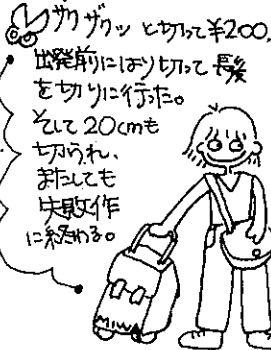 ザクザクッ と切って ¥200.
出発前にはり切って 長髪
を切りに行った。
そして 20cmも
切られ、
またしても
失敗作
に終わる。
MIWA